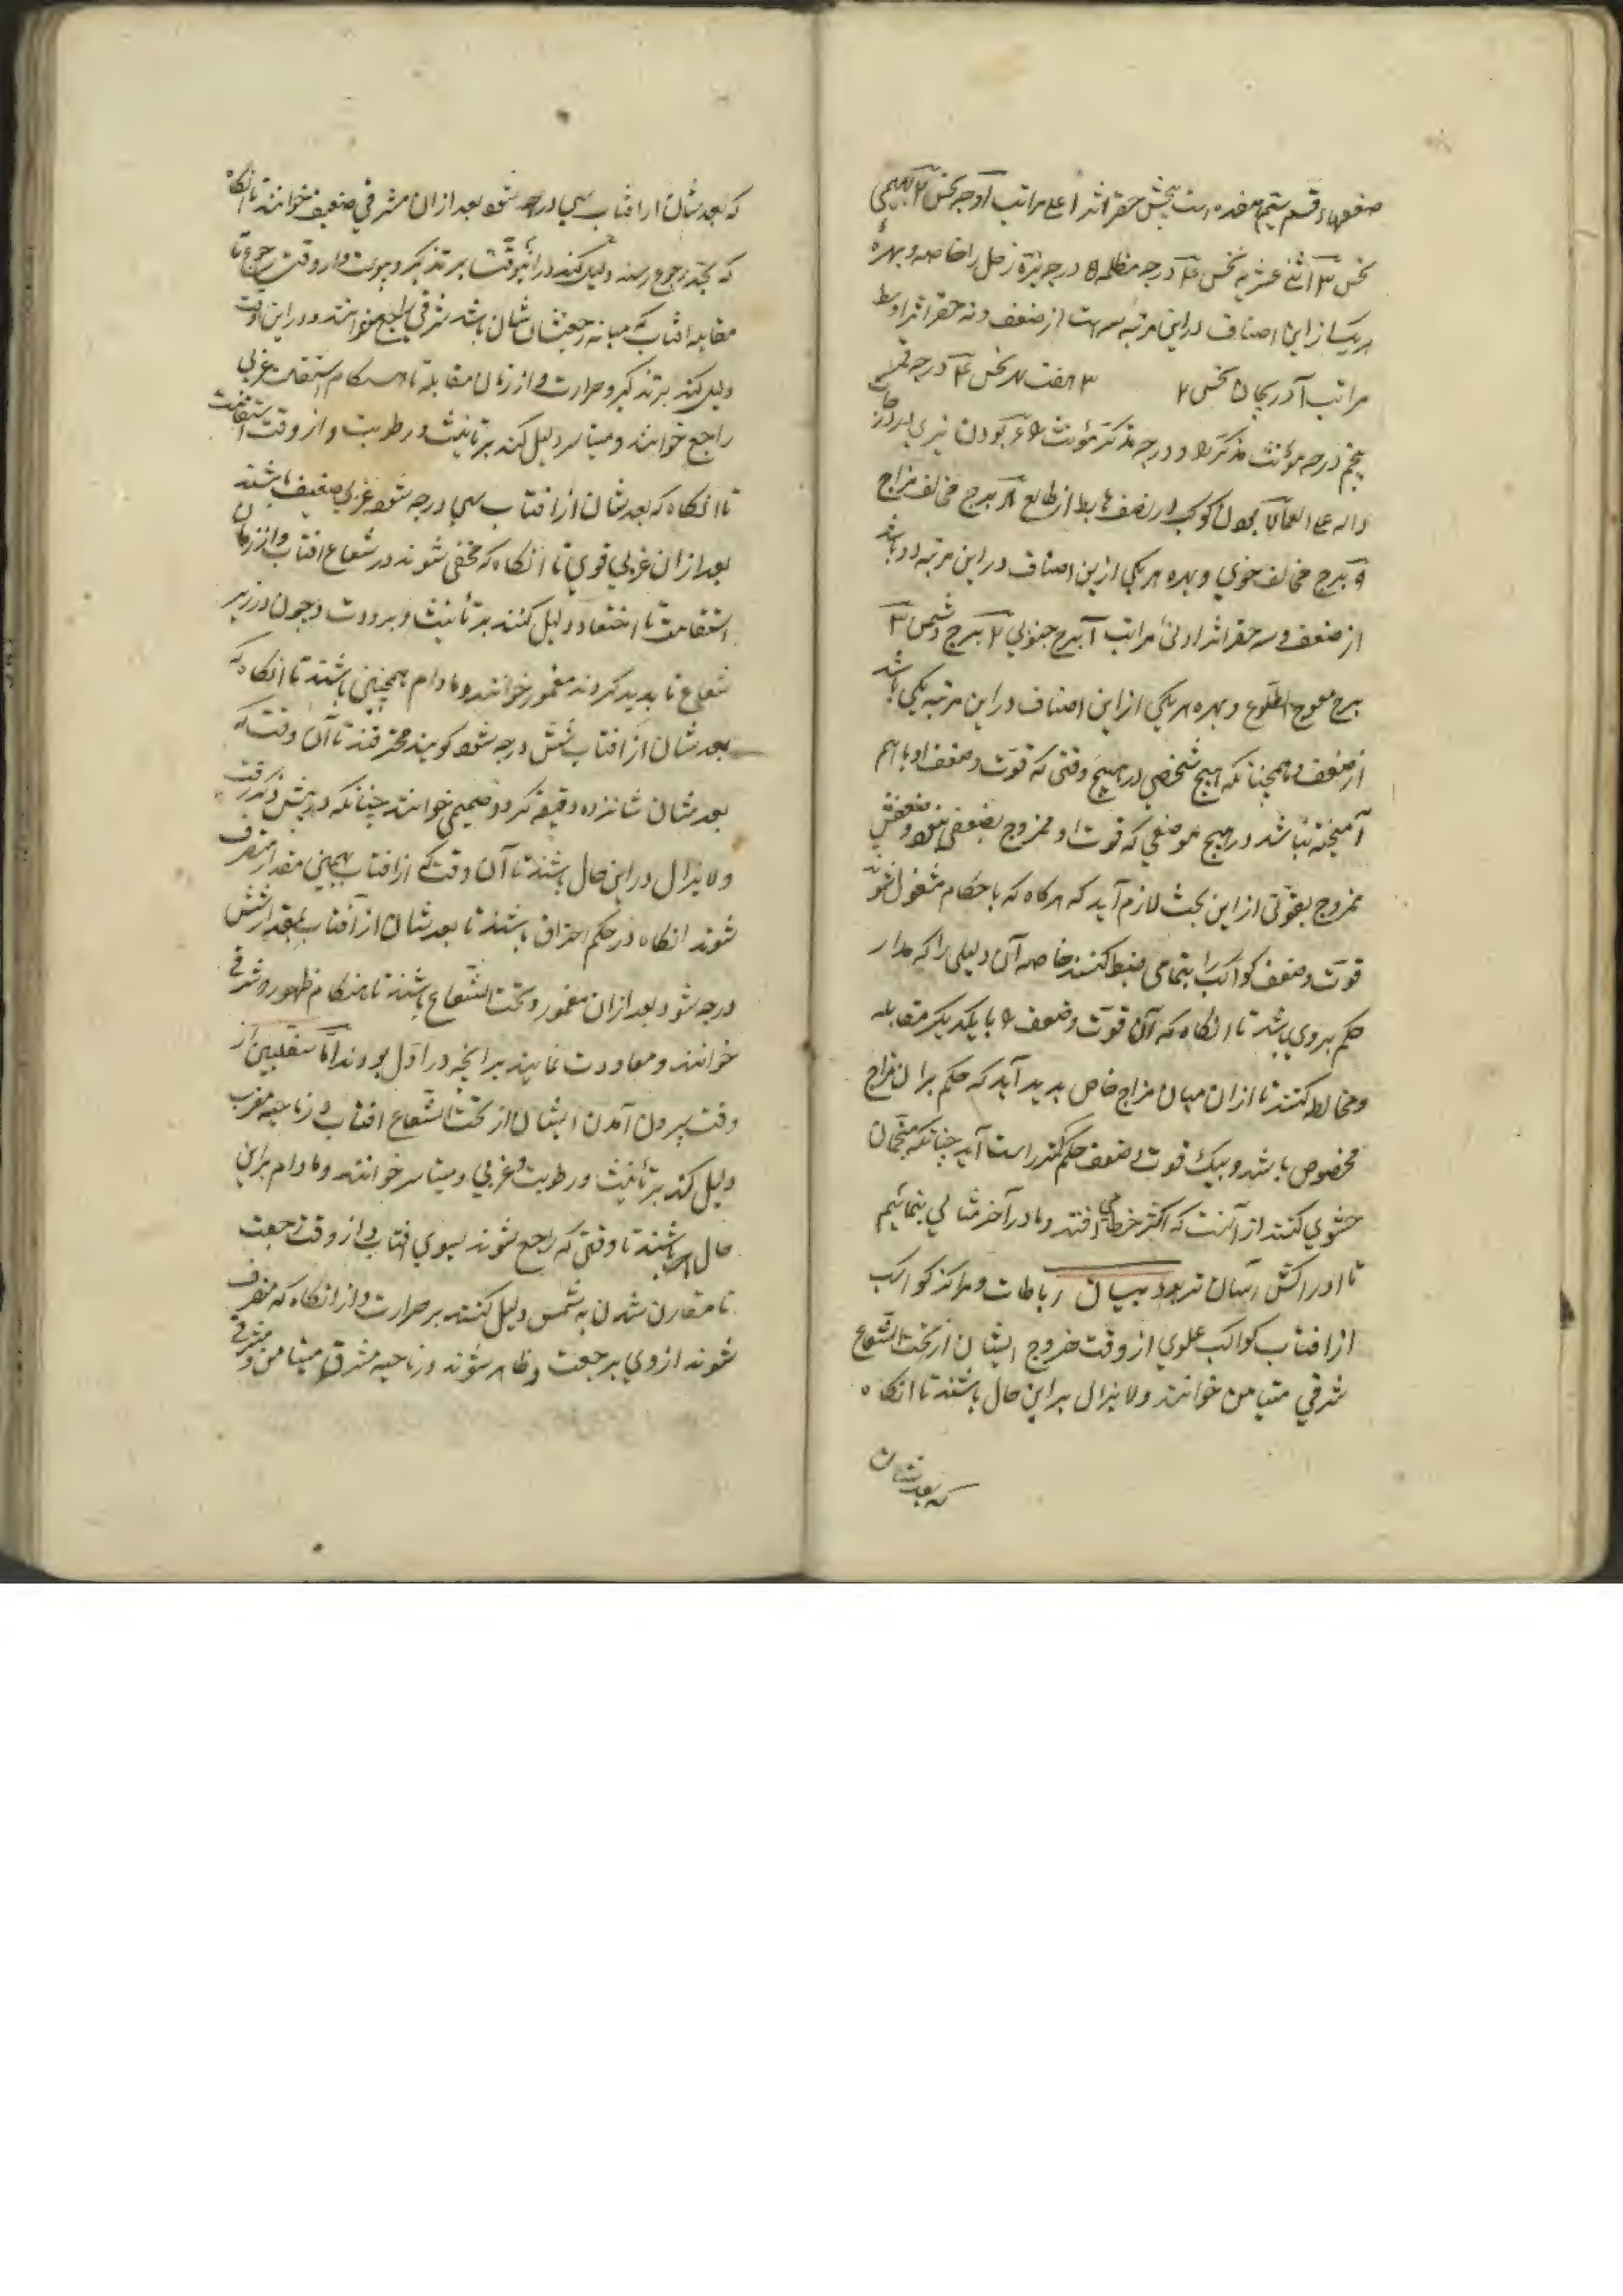 ضعفها و قسم ستیم هفده است بخش حقر اثر اعلی مراتب آ وجه نحس ۲ سهمی
نحس ۳ اثنی عشریه نحس ۴ درجه مظلمه ۵ درجه نیّره زحل را خاصه و بهره
هریک از این اصناف در این مرتبه سه است از ضعف و نه حقر اثر اوسط
مراتب آ دریجان نحس ۲ ۳ هفت بهر نحس ۴ درجه
پنجم درجه مؤنث مذکر را ۶ و درجه مذکر مؤنث را ۷ بودن نیری
دال علی ۸ برج مخالف مزاج
۹ برج مخالف خوی و بهره هر یکی ازین اصناف در این مرتبه دو باشد
از ضعف و سه حقر اثر ادنی مراتب آ برج جنوبی ۲ برج وشمس ۳
برج معوج الطلوع و بهره هر یکی از این اصناف در این مرتبه یکی باشد
از ضعف و همچنانکه هیچ شخصی در هیچ وقتی که قوت و ضعف او باهم
آمیخته نباشد در هیچ موضعی که قوت او ممزوج بضعفی نبود و ضعفش
ممزوج بقوتی از این بحث لازم آید که هرکاه که باحکام مشغول شوند
قوت و ضعف کواکب را بتمامی ضبط کنند خاصه آن دلیلی را که مدار
حکم بر وی باشد تا انکاه که آن قوت و ضعف را با یکدیگر مقابله
و مخالطه کنند تا از ان میان مزاج خاص پدید آید که حکم بر ان مزاج
مخصوص باشد و بیک قوت و ضعف حکم کنند راست آید چنانکه منجمان
حشوی کنند از آنست که اکثر خطا می افتد و ما در آخر مثالی بنمائیم
تا ادراکش آسان تر بود بیان رباطات و مراکز کواکب
از افتاب کواکب علوی از وقت خروج ایشان از تحت الشعاع
شرقی متیامن خوانند و لا یزال بر این حال باشند تا انکاه
که بعدشان
که بعدشان از افتاب سی درجه شود بعد ازان مشرقی ضعیف خوانند تا انکاه
که بحد رجوع رسند دلیل کنند در این وقت بر تذکیر و یبوست و از وقت رجوع تا
مقابله افتاب که میانه رجعتشان باشد شرقی راجع خوانند و در این وقت
دلیل کند بر تذکیر و حرارت و از زمان مقابله تا هنکام استقامت غربی
راجع خوانند و میاسر دلیل کند بر تانیث و رطوبت و از وقت استقامت
تا انکاه که بعدشان از افتاب سی درجه شود غربی ضعیف باشند
بعد ازان غربی قوی تا انکاه که مخفی شوند در شعاع افتاب و از زمان
استقامت تا اختفا دلیل کنند بر تأنیث و برودت و چون در زیر
شعاع ناپدید کردند مغمور خوانند و مادام همچنین باشند تا انکاه که
بعدشان از افتاب شش درجه شود کویند محترقند تا آن وقت که
بعدشان شانزده دقیقه کردد صمیمی خوانند چنانکه در پیش ذکر رفت
و لا یزال در این حال باشند تا آن وقت که از افتاب بهمین مقدار منصرف
شوند انکاه در حکم احتراق باشند تا بعدشان از آفتاب بمقدار شش
درجه شود بعد ازان مغمور و تحت الشعاع باشند تا هنکام ظهور و شرقی
خوانند و معاودت نمایند بر انچه در اول بودند امّا سفلیین از
وقت بیرون آمدن ایشان از تحت الشعاع افتاب در ناحیه مغرب
دلیل کند بر تأنیث و رطوبت و غربی و میاسر خوانند و مادام براین
حال باشند تا وقتی که راجع شوند بسوی افتاب و از وقت رجعت
تا مقارن شدن به شمس دلیل کنند بر حرارت و از انکاه که منصرف
شوند از وی بر جعت و ظاهر شوند در ناحیه مشرق متیامن و مشرقی